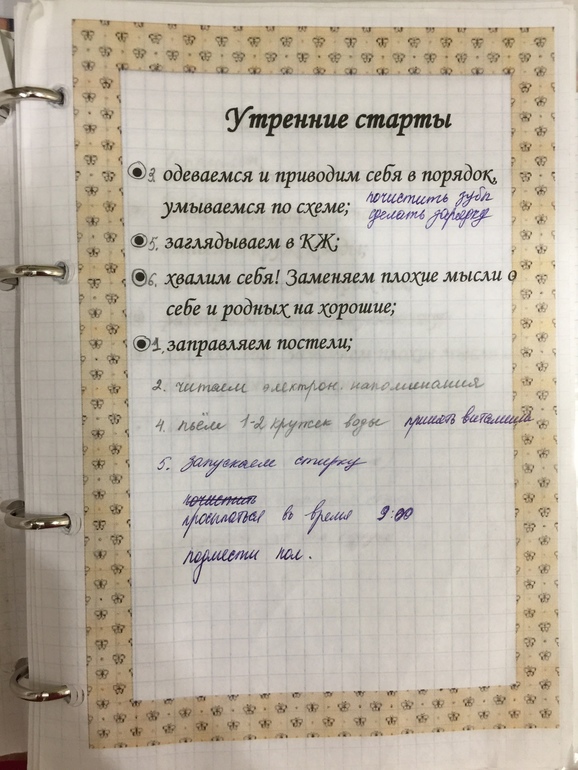 Утренние старты
3. одеваемся и приводим себя в порядок,
умываемся по схеме; почистить зубы
сделать зарядку
5. заглядываем в КЖ;
6. хвалим себя! Заменяем плохие мысли о
себе и родных на хорошие;
1. заправляем постели;
2. читаем электрон. напоминания
4. пьём 1-2 кружек воды принять витамины
5. Запускаем стирку
почистить
просыпаться во время 9:00
подмести пол.